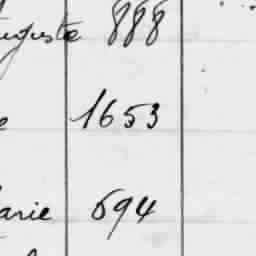 auguste 888
e 1653
arie 694